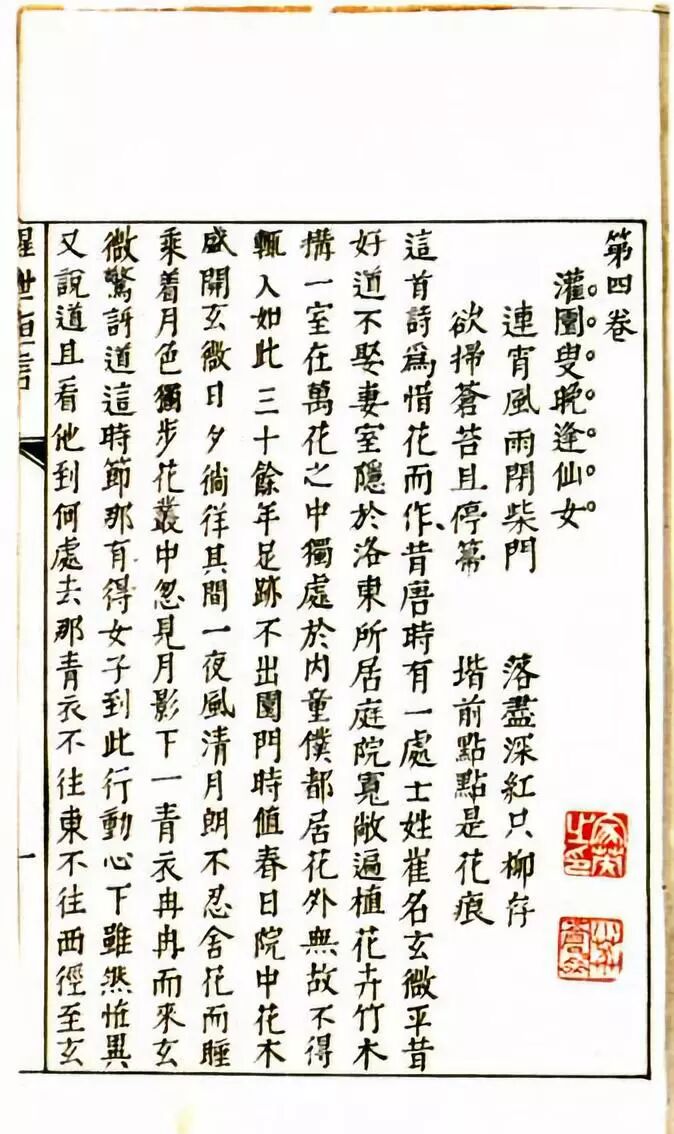 第四卷
灌園叟晚逢仙女
連宵風雨閉柴門　落盡深紅只柳存
欲掃蒼苔且停箒　堦前點點是花痕
這首詩爲惜花而作、昔唐時有一處士姓崔名玄微平昔
好道不娶妻室隱於洛東所居庭院寬敞遍植花卉竹木
搆一室在萬花之中獨處於內童僕都居花外無故不得
輒入如此三十餘年足跡不出園門時值春日院中花木
盛開玄微日夕徜徉其間一夜風清月朗不忍舍花而睡
乘着月色獨步花叢中忽見月影下一青衣冉冉而來玄
微驚訝道這時節那有得女子到此行動心下雖然怪異
又說道且看他到何處去那青衣不往東不往西徑至玄
醒世恒言
一
家英之印